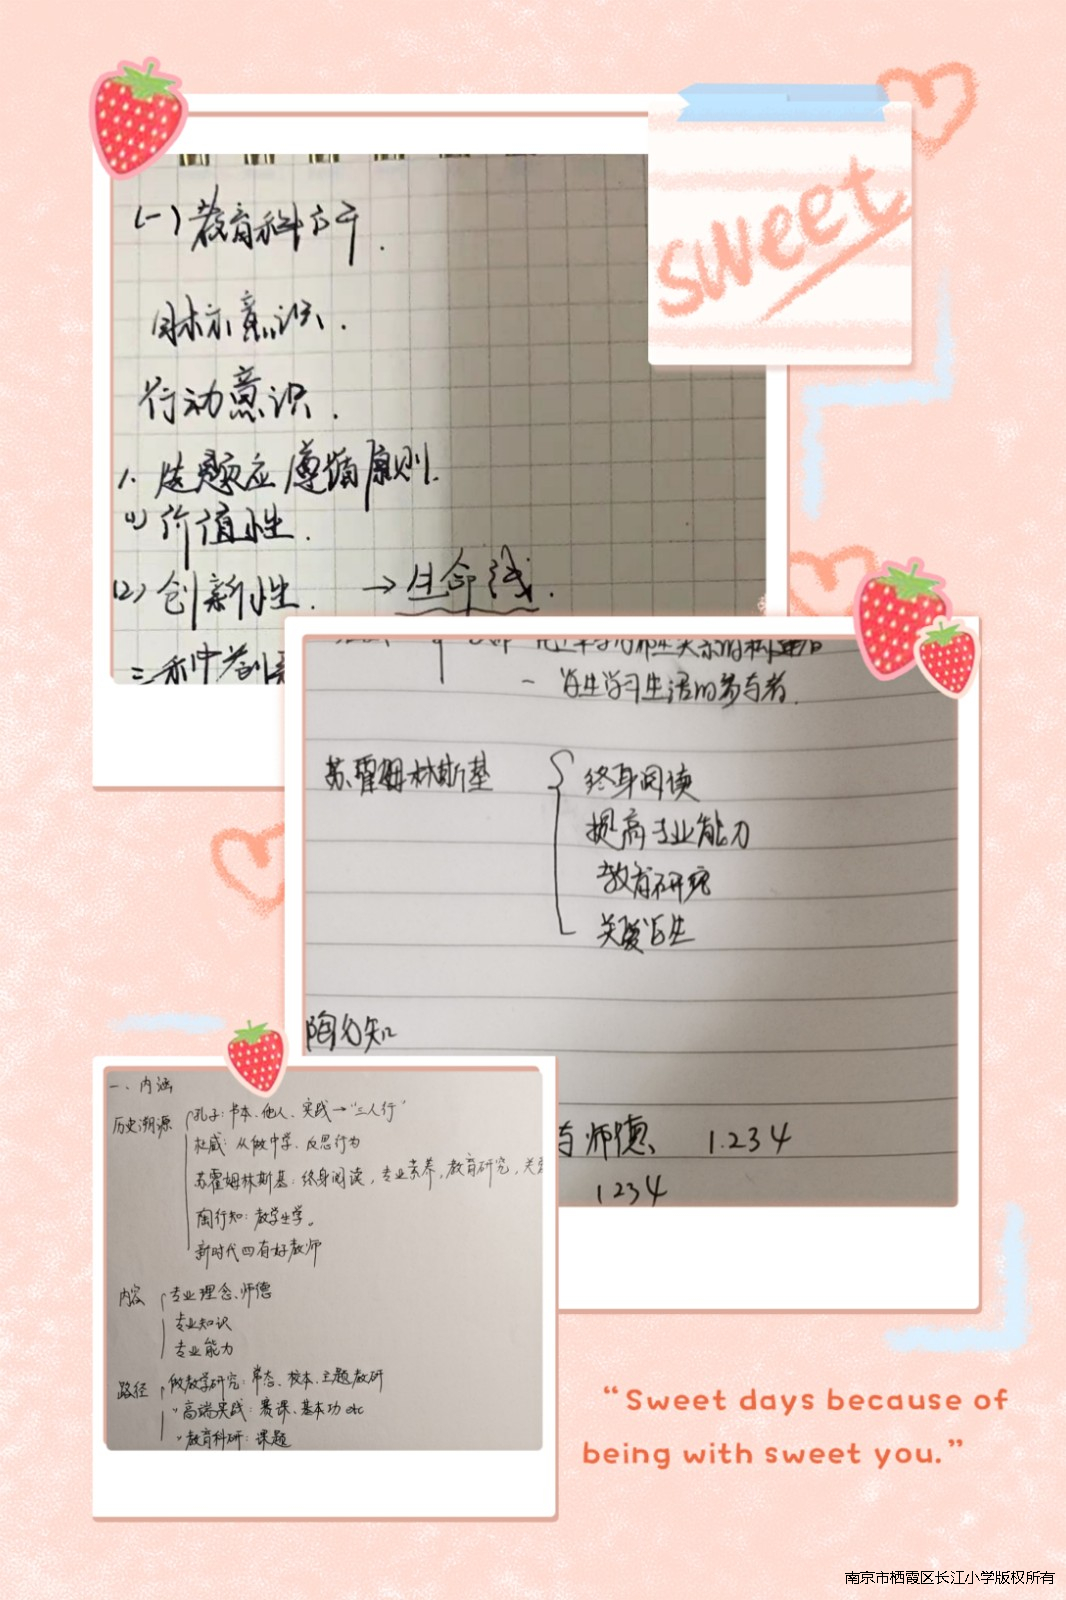 sweet
(一)教育科研.
目标意识.
行动意识.
1. 选题应遵循原则.
(1) 价值性.
(2) 创新性. → 生命线.
三种
学生学习生活的参与者.
苏霍姆林斯基
终身阅读
提高专业能力
教育研究
关爱学生
陶行知
与师德 1.234
1234
一、内涵
历史溯源
孔子:书本、他人、实践→“三人行”
杜威:从做中学、反思行为
苏霍姆林斯基:终身阅读,专业素养,教育研究,关爱
陶行知:教学生学。
新时代四有好教师
内容
专业理念、师德
专业知识
专业能力
路径
做教学研究:常态、校本、主题教研
〃高端实践:赛课、基本功etc
〃教育科研:课题
“Sweet days because of
being with sweet you.”
南京市栖霞区长江小学版权所有